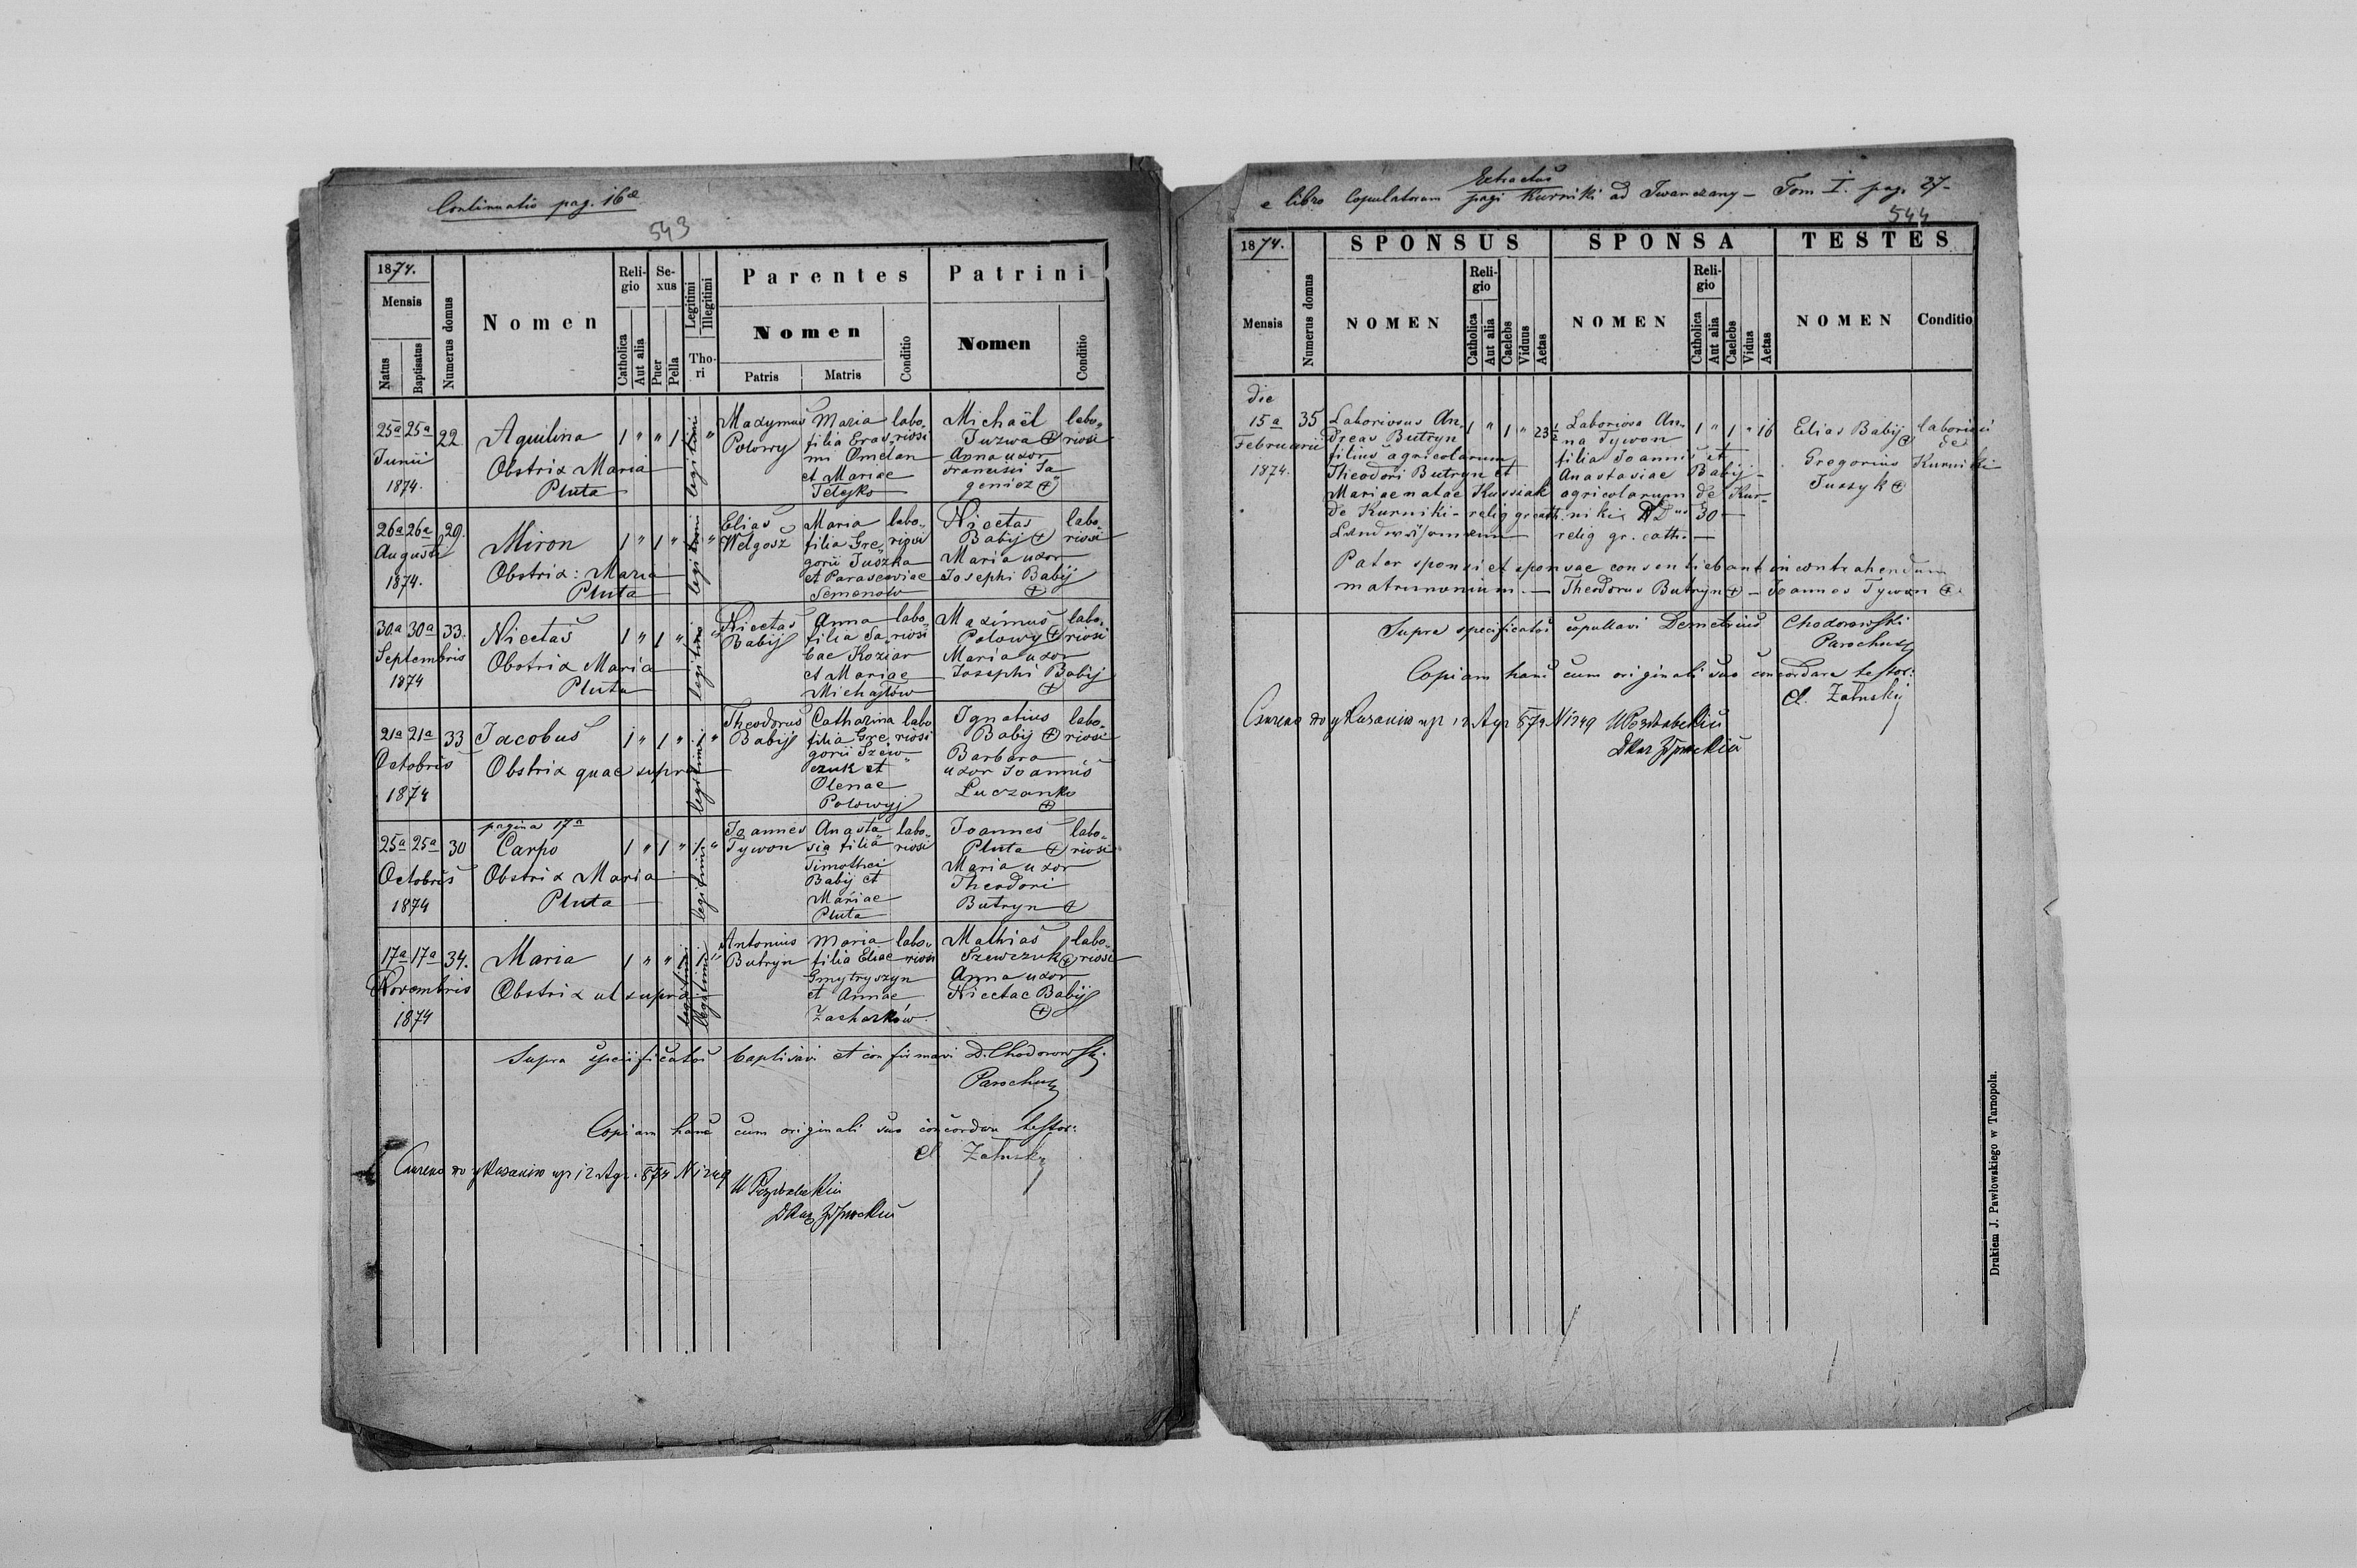 Continuatio pag. 16æ
543
1874.
Mensis
Natus
Baptisatus
Numerus domus
Nomen
Religio
Catholica
Aut alia
Sexus
Puer
Pella
Legitimi
Illegitimi
Thori
Parentes
Nomen
Patris
Matris
Conditio
Patrini
Nomen
Conditio
25a 25a 22 Aquilina 1 " " 1 legitimi " Maxymus Maria labo- Michaël labo-
Junii Obstrix Maria Polowy filia Eras riosi Juzwa riosi
1874. Pluta mi Omelan Anna uxor
et Mariae Francisci Ja
Tetyko geniez
26a 26a 29. Miron 1 " 1 " legitimi " Elias Maria labo- Nicetas labo-
Augusti Obstrix: Maria Welgosz filia Gre riosi Babij riosi
1874. Pluta gorii Juszka Maria uxor
et Parascewiae Josephi Babij
Semenow
30a 30a 33. Nicetas 1 " 1 " legitimi " Nicetas Anna labo- Maximus labo-
Septembris Obstrix Maria Babij filia Sa riosi Polowy riosi
1874 Pluta bae Koziar Maria uxor
et Mariae Josephi Babij
Michajlów
21a 21a 33 Jacobus 1 " 1 " legitimi 1 " Theodorus Catharina labo Ignatius labo-
Octobris Obstrix quae supra Babij filia Gre riosi Babij riosi
1874 gorii Szew Barbara
czuk et uxor Joannis
Olenae Luczanko
Polowyj
pagina 17a
25a 25a 30 Carpo 1 " 1 " legitimi 1 " Joannes Anasta labo- Joannes labo-
Octobris Obstrix Maria Tywon sia filia riosi Pluta riosi
1874 Pluta Timothei Maria uxor
Babij et Theodori
Mariae Butryn
Pluta
17a 17a 34. Maria 1 " " 1 legitimi 1 " Antonius Maria labo- Mathias labo-
Novembris Obstrix ut supra Butryn filia Eliae riosi Szewczuk riosi
1874 Gmytryszyn Anna uxor
et Annae Nicetae Babij
Zacharków
Supra specificatos baptisavi et confirmavi D. Chodorowski
Parochus
Copiam hanc cum originali suo concordare testor:
Załuski
Extractus
e libro Copulatorum pagi Kurniki ad Iwanczany - Tom I. pag. 27-
544
1874.
Mensis
Numerus domus
SPONSUS
NOMEN
Religio
Catholica
Aut alia
Caelebs
Viduus
Aetas
SPONSA
NOMEN
Religio
Catholica
Aut alia
Caelebs
Vidua
Aetas
TESTES
NOMEN
Conditio
die
15a 35 Laboriosus An- 1 " 1 " 23 1/2 Laboriosa An- 1 " 1 " 16 Elias Babij laboriosi
Februarii dreas Butryn na Tywon de
1874. filius agricolarum filia Joannis et Gregorius Kurniki
Theodori Butryn et Anastasiae Babij - Juszyk
Mariae natae Kussiak agricolarum de Kur-
de Kurniki - relig gr cath. niki 30 -
relig gr. cath. -
Pater sponsi et sponsae consentiebant in contrahendum
matrimonium. - Theodorus Butryn - Joannes Tywon
Supra specificatos copullavi Demetrius Chodorowski
Parochus
Copiam hanc cum originali suo concordare testor:
Załuski
Drukiem J. Pawłowskiego w Tarnopolu.